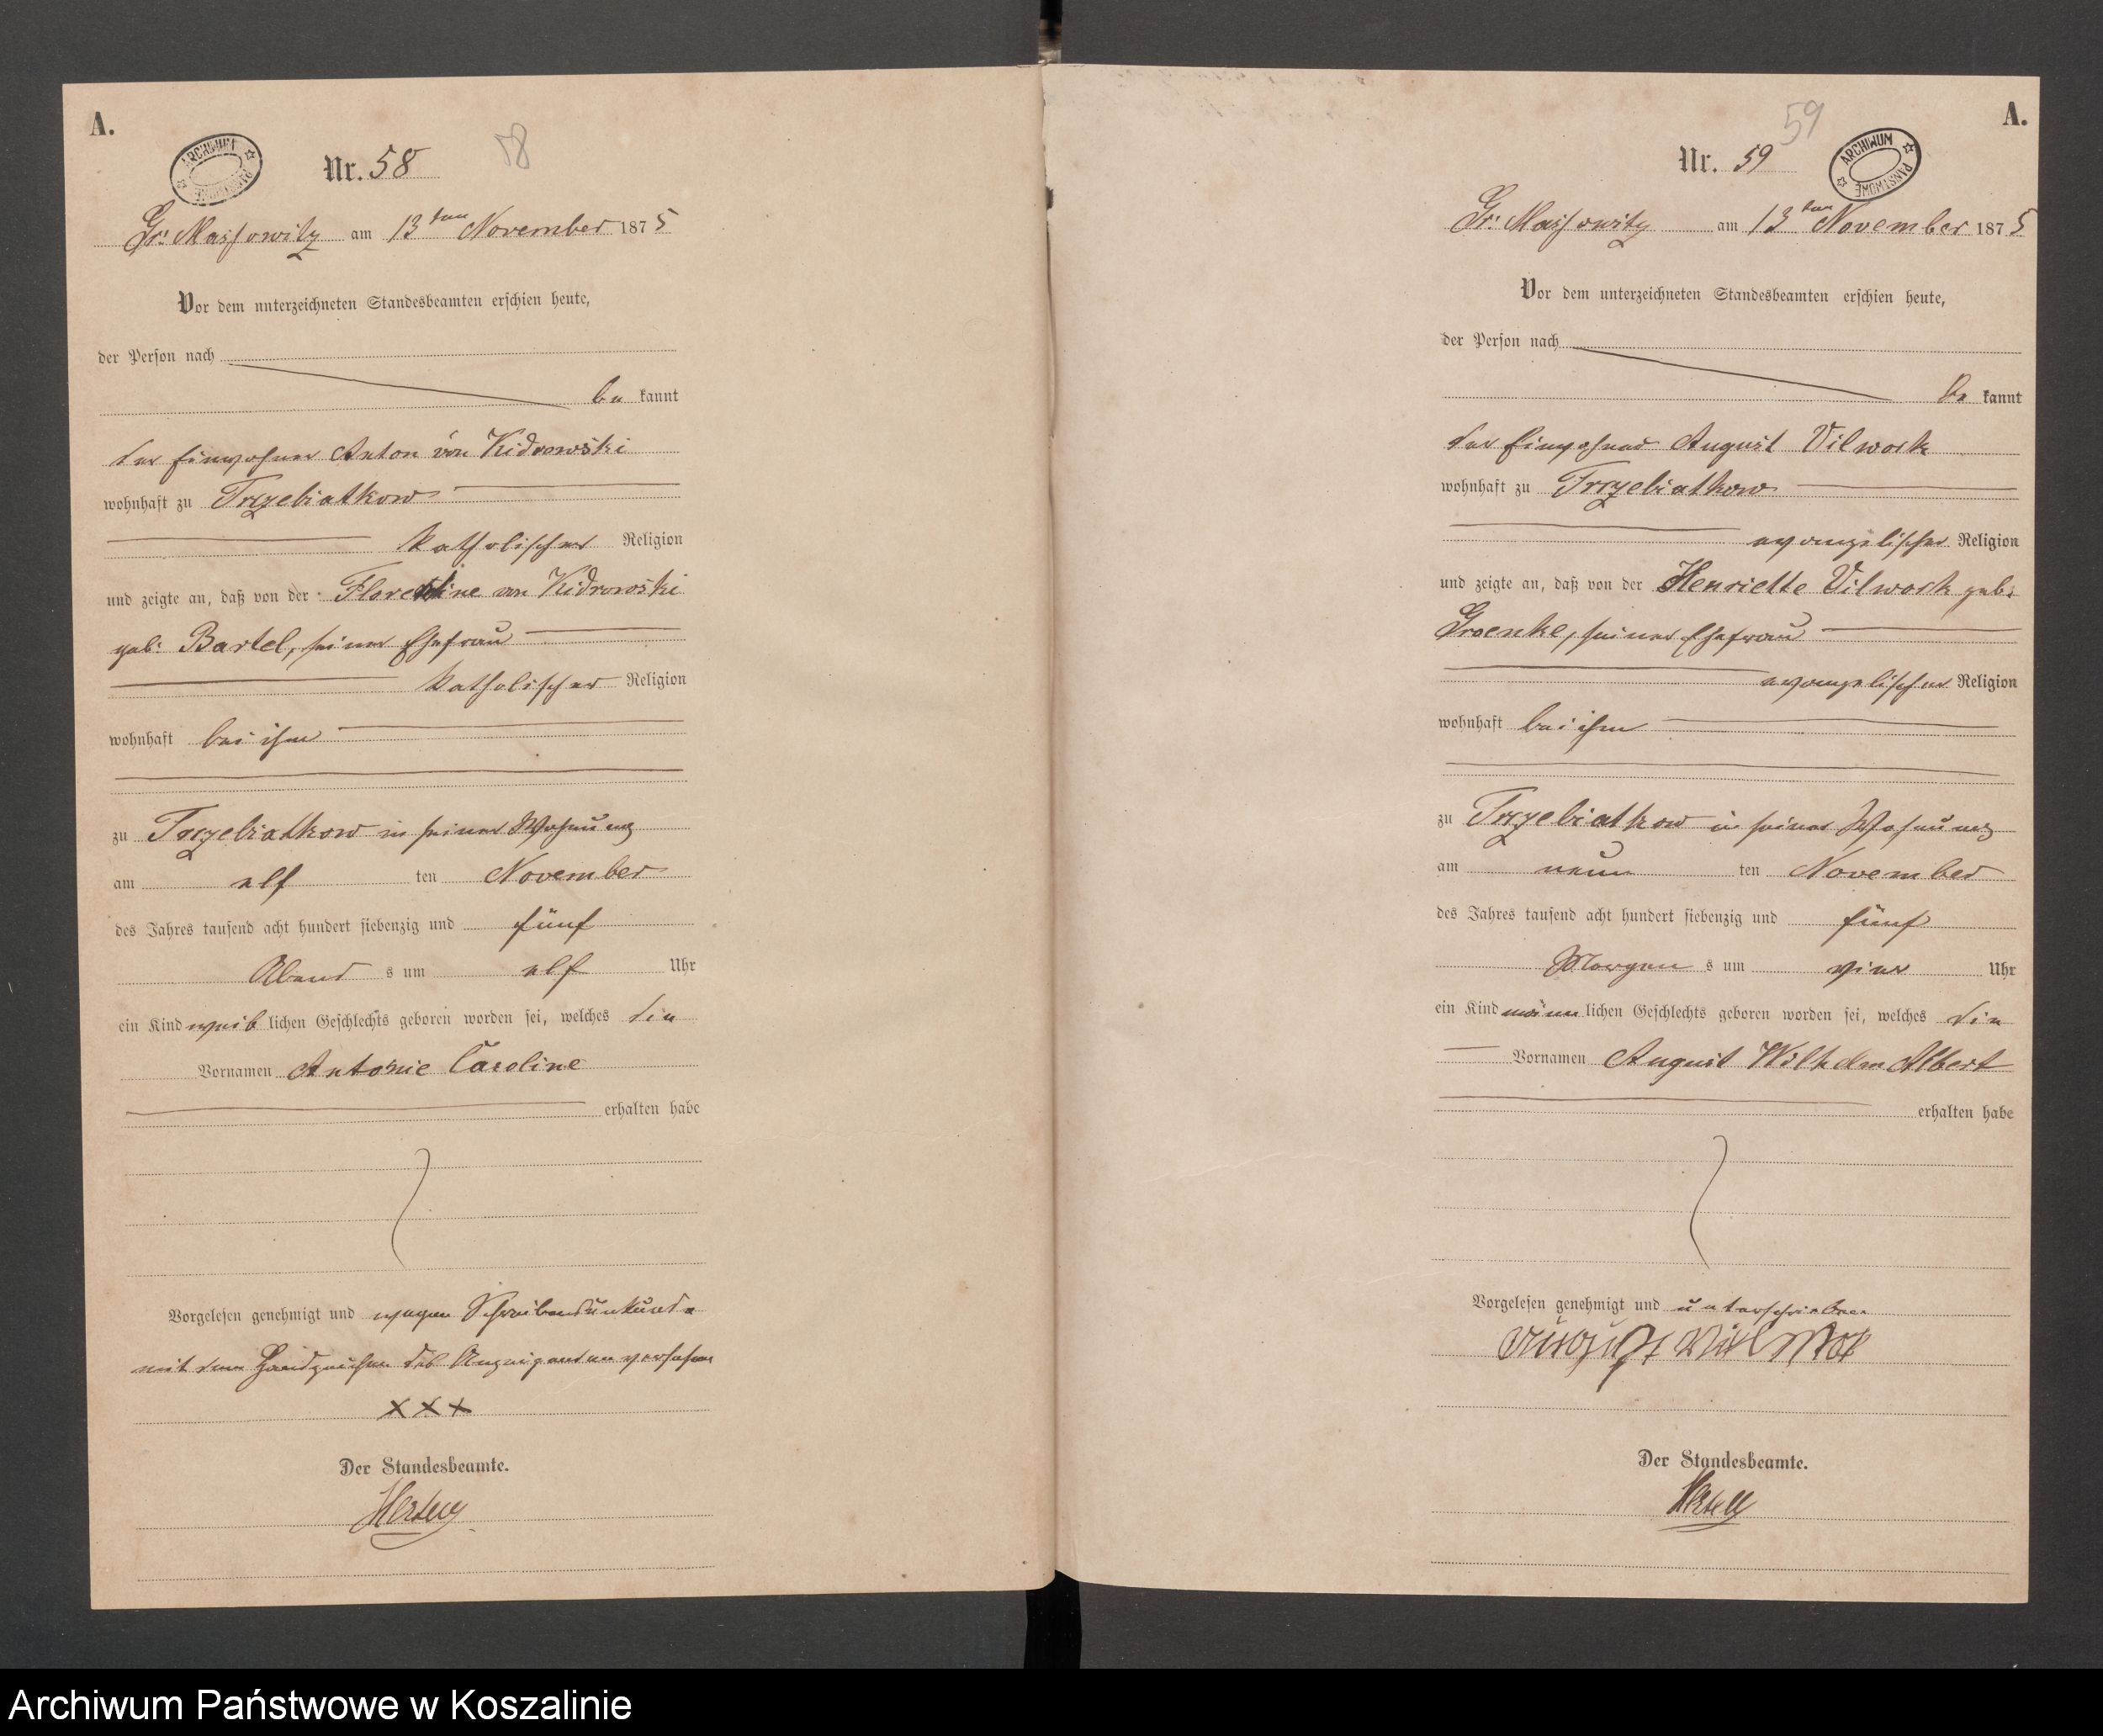 A.
ARCHIWUM PAŃSTWOWE
Nr. 58
58
Gr: Massowitz am 13ten November 1875
Vor dem unterzeichneten Standesbeamten erschien heute,
der Person nach
be kannt
der Einwohner Anton von Kidrowski
wohnhaft zu Trzebiatkow
katholischer Religion
und zeigte an, daß von der Florentine von Kidrowski
geb: Bartel, seiner Ehefrau
katholischer Religion
wohnhaft bei ihm
zu Trzebiatkow in seiner Wohnung
am elf ten November
des Jahres tausend acht hundert siebenzig und fünf
Abend s um elf Uhr
ein Kind weib lichen Geschlechts geboren worden sei, welches die
Vornamen Antonie Caroline
erhalten habe
Vorgelesen genehmigt und wegen Schreibensunkunde
mit dem Handzeichen des Anzeigenden versehen
XXX
Der Standesbeamte.
A.
59
Nr. 59
ARCHIWUM PAŃSTWOWE
Gr: Massowitz am 13ten November 1875
Vor dem unterzeichneten Standesbeamten erschien heute,
der Person nach
be kannt
der Einwohner August Vilwock
wohnhaft zu Trzebiatkow
evangelischer Religion
und zeigte an, daß von der Henriette Vilwock geb:
Groenke, seiner Ehefrau
evangelischer Religion
wohnhaft bei ihm
zu Trzebiatkow in seiner Wohnung
am neun ten November
des Jahres tausend acht hundert siebenzig und fünf
Morgen s um vier Uhr
ein Kind männ lichen Geschlechts geboren worden sei, welches die
Vornamen August Wilhelm Albert
erhalten habe
Vorgelesen genehmigt und unterschrieben
August
Der Standesbeamte.
Archiwum Państwowe w Koszalinie